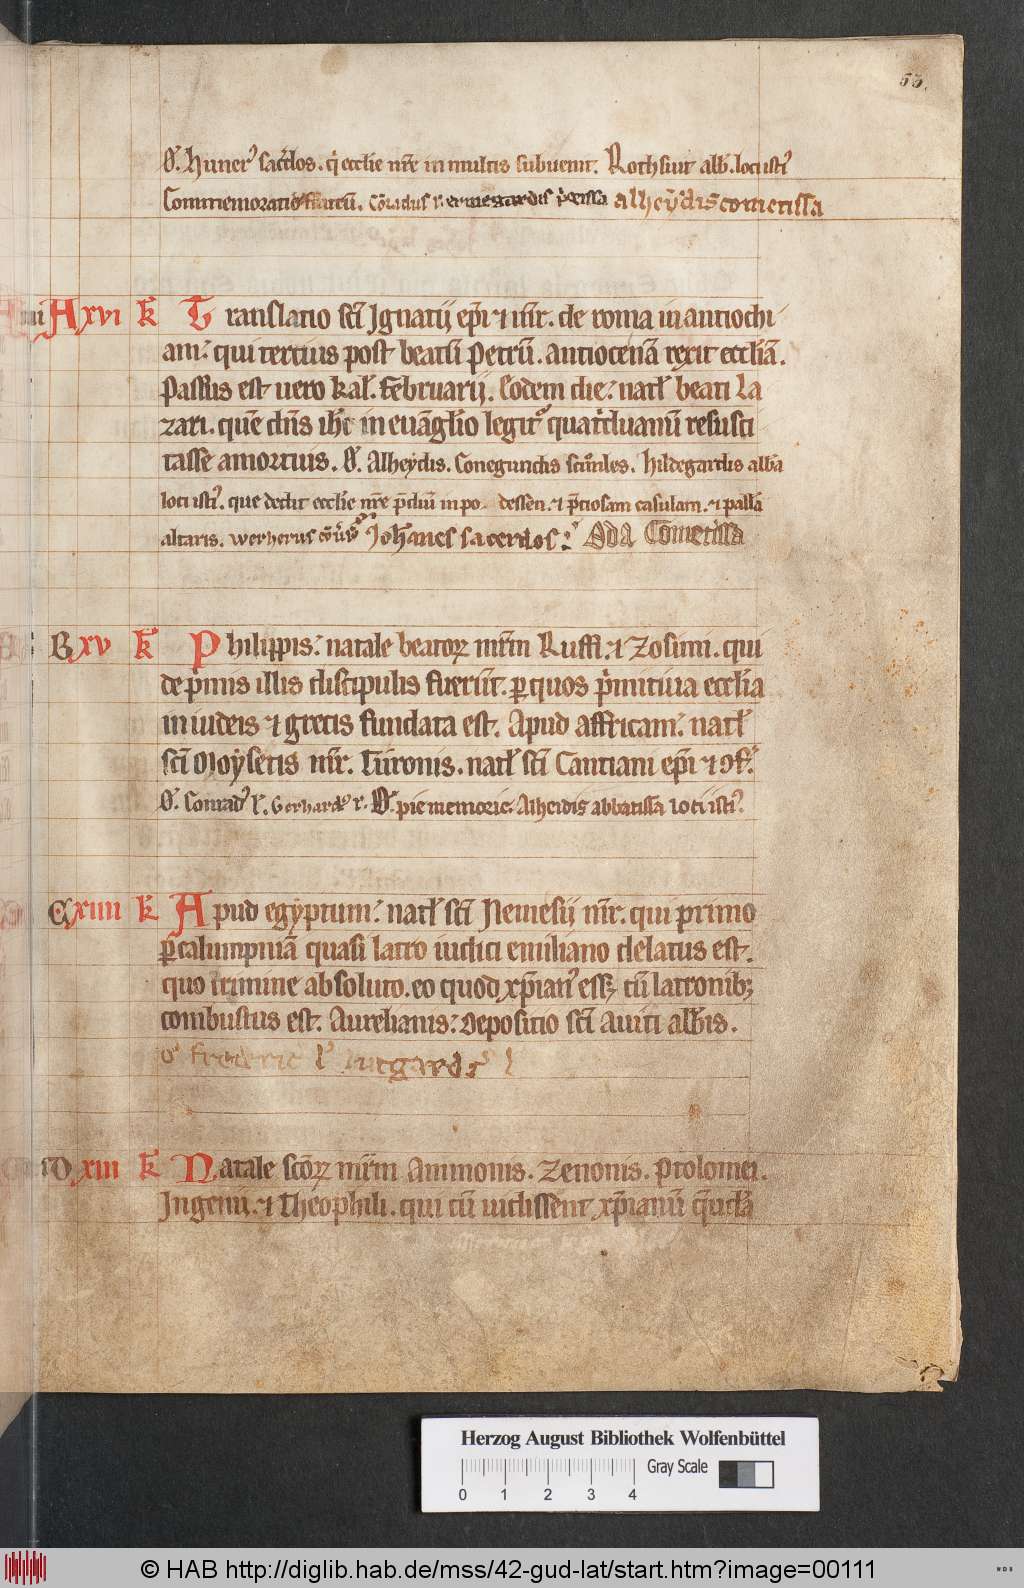 55.
Ꝋ. Huner᷒ sac̄dos. q̇ eccl̄ie nr̄e in multis subuenit. Rothsuit alb̄. loci isti᷒
Commemoratio fratrū. Cōradus l. ermegardis p̄tissa alheydis cometissa
A xvi k̄ Translatio sc̄i Ignatij ep̄i ⁊ mr̄. de roma in antiochi
am. qui tercius post beatū Petrū. antiocenā rexit eccl̄iā.
Passus est uero kal̄. Februarij. Eodem die. natl̄ beati La
zari. quē dn̄s ih̄c in euāglio legit᷒ quat̄duanū resusci
tasse a mortuis. Ꝋ. Alheydis. Conegundis Hildegardis alb̄a
loci isti᷒. que dedit eccl̄ie nr̄e p̄diū in po dessen. ⁊ p̄ciosam casulam. ⁊ pallā
altaris. Wernerus Johanes sacerdos. Oda Cometissa
B xv k̄ Philippis. natale beatoꝝ mr̄m Ruffi. ⁊ Zosimi. qui
de p̄mis illis discipulis fuerūt. ꝑ quos p̄mitiua eccl̄ia
in iudeis ⁊ grecis fundata est. Apud affricam. natl̄
sc̄i Moysetis mr̄. Turonis. natl̄ sc̄i Catiani ep̄i ⁊ ↄf.
Ꝋ. Conrad᷒ l᷒. Gerhard᷒ l᷒. Ꝋ. pie memorie. Alheidis abbatissa loci isti᷒.
C xiiii k̄ Apud egyptum. natl̄ sc̄i Nemesii mr̄. qui primo
ꝑ calumpniā quasi latro iudici emiliano delatus est.
quo crimine absoluto. eo quod xp̄ian᷒ essꝫ cū latronibꝫ
combustus est. Aurelianis. depositio sc̄i Auiti abb̄is.
o᷒ frederic l᷒ lutgardis᷒ l
D xiii k̄ Natale sc̄oꝝ mr̄m Ammonis. Zenonis. Ptolomei.
Ingenui. ⁊ Theophili. qui cū uidissent xp̄ianū q̄ndā
Herzog August Bibliothek Wolfenbüttel
Gray Scale
0 1 2 3 4
© HAB http://diglib.hab.de/mss/42-gud-lat/start.htm?image=00111